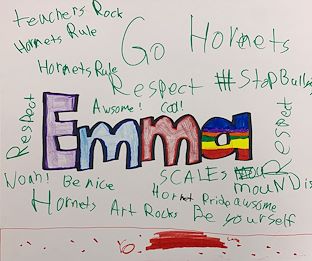 teachers Rock
Hornets Rule
Go Hornets
Hornets Rule
Respect #StopBull
Awsome! Cool!
Respect
Emma
Respect
Noah! Be nice
SCALES
mouND
Hornet Pride awsome
Hornets Art Rocks Be yourself